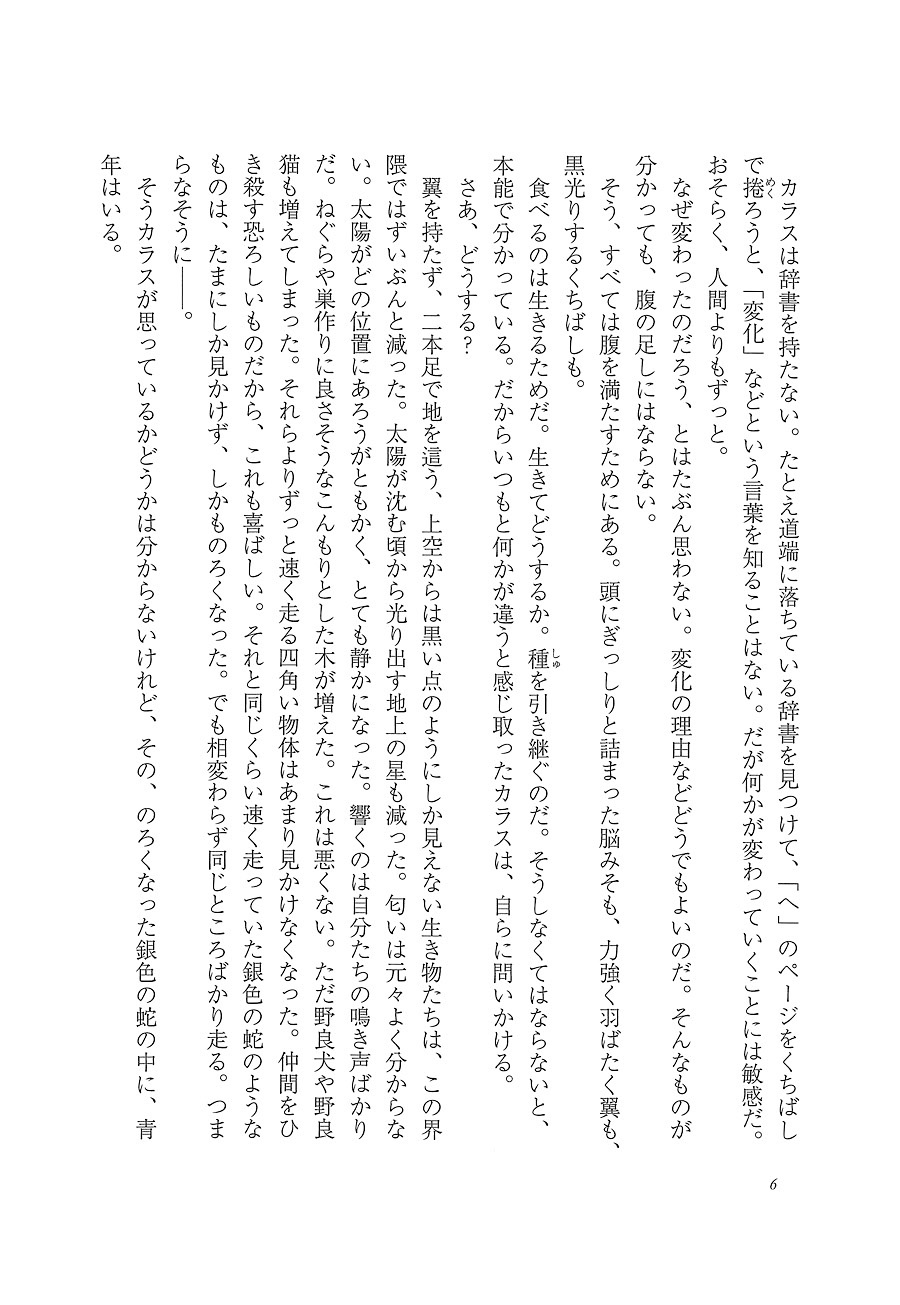 カラスは辞書を持たない。たとえ道端に落ちている辞書を見つけて、「へ」のページをくちばし
で捲ろうと、「変化」などという言葉を知ることはない。だが何かが変わっていくことには敏感だ。
めく
おそらく、人間よりもずっと。
なぜ変わったのだろう、とはたぶん思わない。変化の理由などどうでもよいのだ。そんなものが
分かっても、腹の足しにはならない。
そう、すべては腹を満たすためにある。頭にぎっしりと詰まった脳みそも、力強く羽ばたく翼も、
黒光りするくちばしも。
食べるのは生きるためだ。生きてどうするか。種を引き継ぐのだ。そうしなくてはならないと、
しゅ
本能で分かっている。だからいつもと何かが違うと感じ取ったカラスは、自らに問いかける。
さあ、どうする?
翼を持たず、二本足で地を這う、上空からは黒い点のようにしか見えない生き物たちは、この界
隈ではずいぶんと減った。太陽が沈む頃から光り出す地上の星も減った。匂いは元々よく分からな
い。太陽がどの位置にあろうがともかく、とても静かになった。響くのは自分たちの鳴き声ばかり
だ。ねぐらや巣作りに良さそうなこんもりとした木が増えた。これは悪くない。ただ野良犬や野良
猫も増えてしまった。それらよりずっと速く走る四角い物体はあまり見かけなくなった。仲間をひ
き殺す恐ろしいものだから、これも喜ばしい。それと同じくらい速く走っていた銀色の蛇のような
ものは、たまにしか見かけず、しかものろくなった。でも相変わらず同じところばかり走る。つま
らなそうに——。
そうカラスが思っているかどうかは分からないけれど、その、のろくなった銀色の蛇の中に、青
年はいる。
6